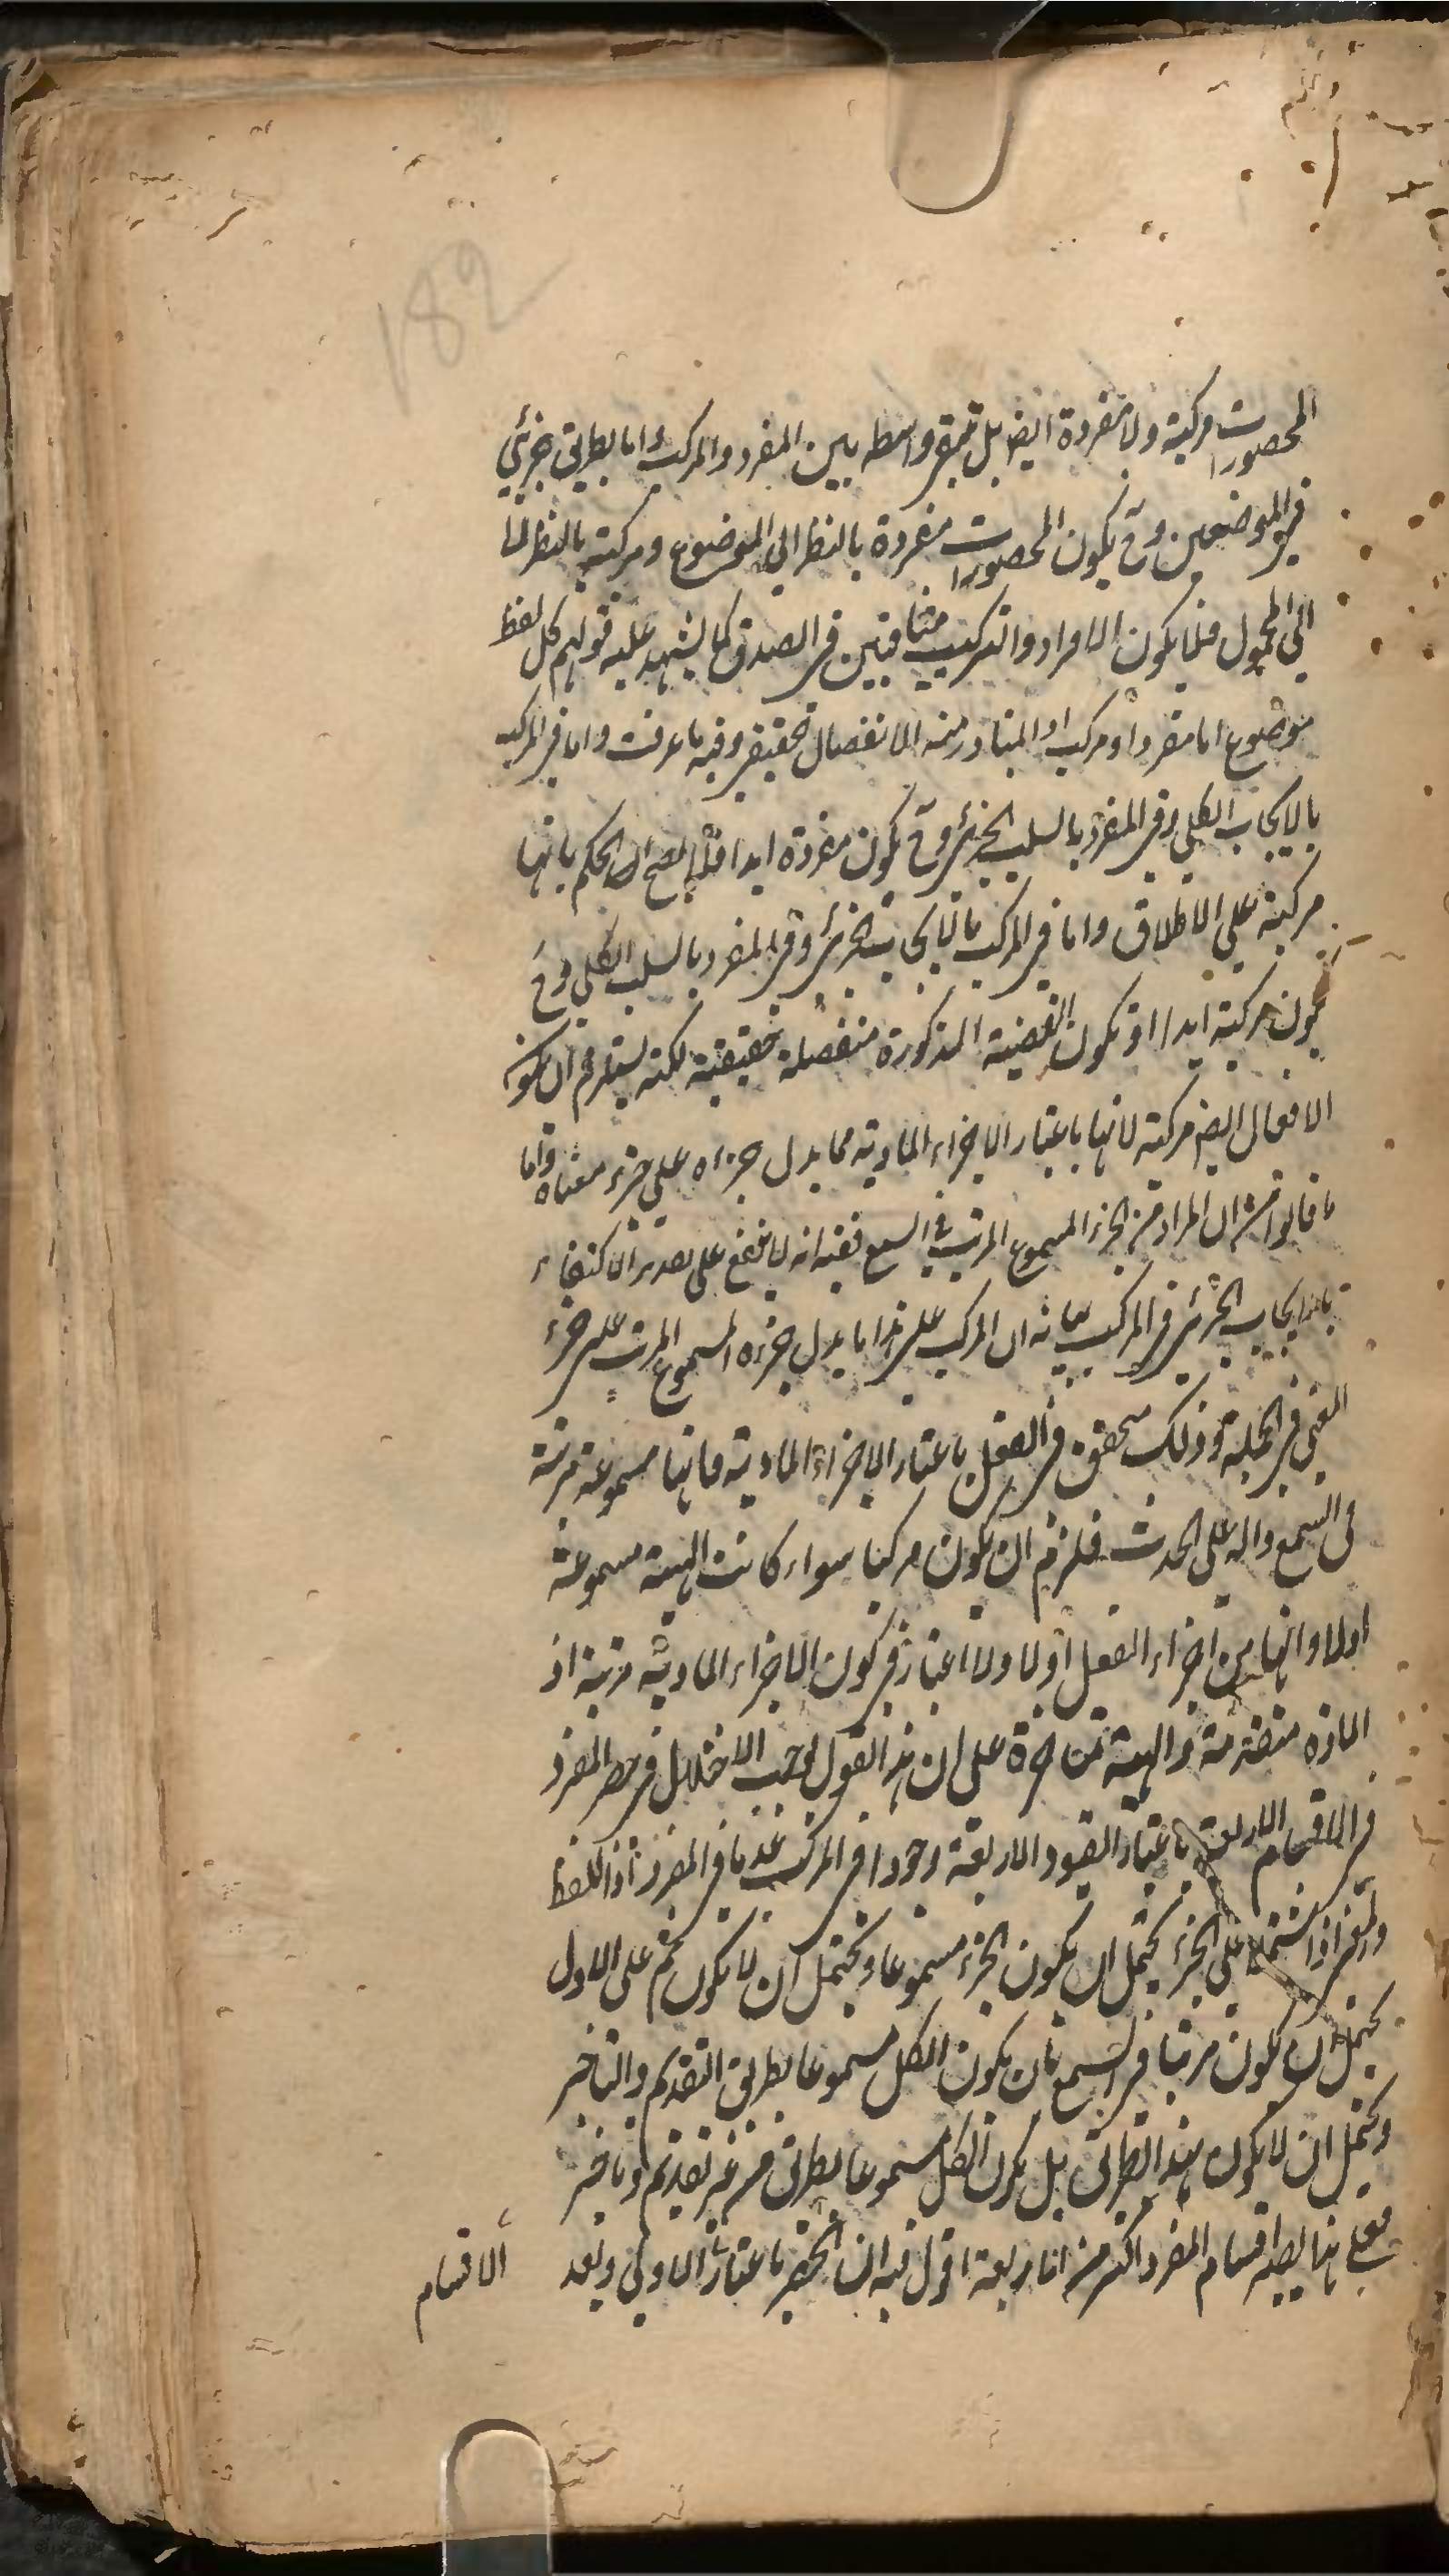 182
المحصورات مركبة ولا مفردة ايضا بل تبقى واسطه بين المفرد والمركب واما بطريق جزئي
في الموضعين وح يكون المحصورات مفردة بالنظر الي الموضوع ومركبة بالنظر
الي المحمول فلما يكون الافراد والتركيب متنافيين في الصدق كما يشهد عليه قولهم كل لفظ
موضوع اما مفرد او مركب اذ المتبادر منه الانفصال الحقيقي وفيه ما عرفت واما في المركب
بالايجاب الكلي وفي المفرد بالسلب الجزئي وح يكون مفردة ابدا فلم يصح الحكم بانها
مركبة علي الاطلاق واما في المركب بالايجاب الجزئي وفي المفرد بالسلب الكلي وح
يكون مركبة ابدا اذ تكون القضية المذكورة منفصلة حقيقية لكنه يستلزم ان يكون
الافعال ايضا مركبة لانها باعتبار الاجزاء المادية مما يدل جزءه علي جزء معناه واما
ما قالوا من ان المراد من الجزء المسموع المرتب في السمع ففيه انه لا ينفع علي تقدير الاكتفاء
بالايجاب الجزئي في المركب بيانه ان المركب علي هذا ما يدل جزءه المسموع المرتب علي جزء
المعني في الجملة وذلك متحقق في الفعل باعتبار الاجزاء المادية فانها مسموعة مرتبة
في السمع دالة علي الحدث فلزم ان يكون مركبا سواء كانت الهيئة مسموعة
اولا وانها من اجزاء الفعل اولا ولا اعتبار في كون الاجزاء المادية مرتبة اذ
المادة متقدمة والهيئة متاخرة علي ان هذا القول يوجب الاختلال في حصر المفرد
في الاقسام الاربعة باعتبار القيود الاربعة وجودا في المركب عدما في المفرد اذ اللفظ
والمعني اذا اشتملا علي الجزء يحتمل ان يكون الجزء مسموعا ويحتمل ان لا يكون ثم علي الاول
يحتمل ان يكون مرتبا في السمع بان يكون الكل مسموعا بطريق التقديم والتاخير
ويحتمل ان لا يكون بهذا الطريق بل يكون الكل مسموعا بطريق من غير تقديم وتاخير
فعلي هذا يصير اقسام المفرد اكثر من الاربعة اقول فيه ان الحصر باعتبار الاولي وبعد
الاقسام